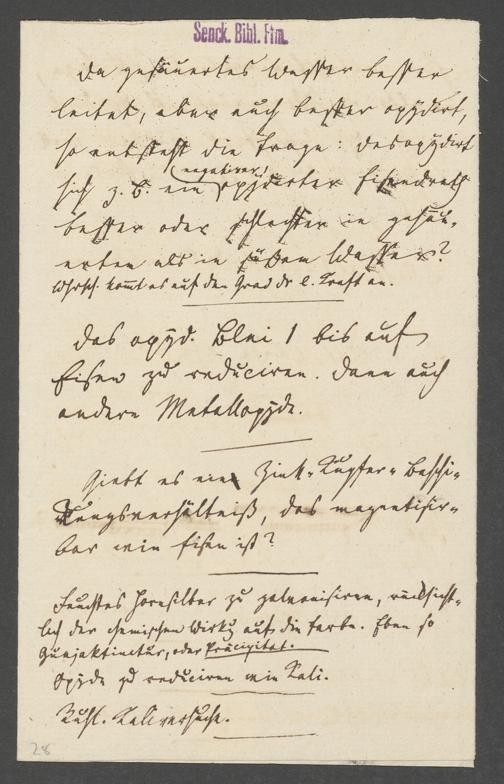 Senck. Bibl. Ffm.
Da gesäuertes Wasser besser
leitet, aber auch besser oxydirt,
so entsteht die Frage: desoxydirt
negativer
sich z. B. ein oxydirter Eisendrath
besser oder schlechter in gesäu-
erten als in süßem Wasser?
Wahrsch. kommt es auf den Grad der e. Kraft an.
Das oxyd. Blei 1 bis auf
Eisen zu reduciren. Dann auch
andere Metalloxyde.
Giebt es ein Zink-Kupfer-Beschi-
kungsverhältniß, das magnetisir-
bar wie Eisen ist?
Feuchtes Hornsilber zu galvanisiren, rücksicht-
lich der chemischen Wirkg auf die Farbe. Eben so
oder Präcipitat.
Oxyde zu reduciren wie Kali.
Kaliversuche.
28